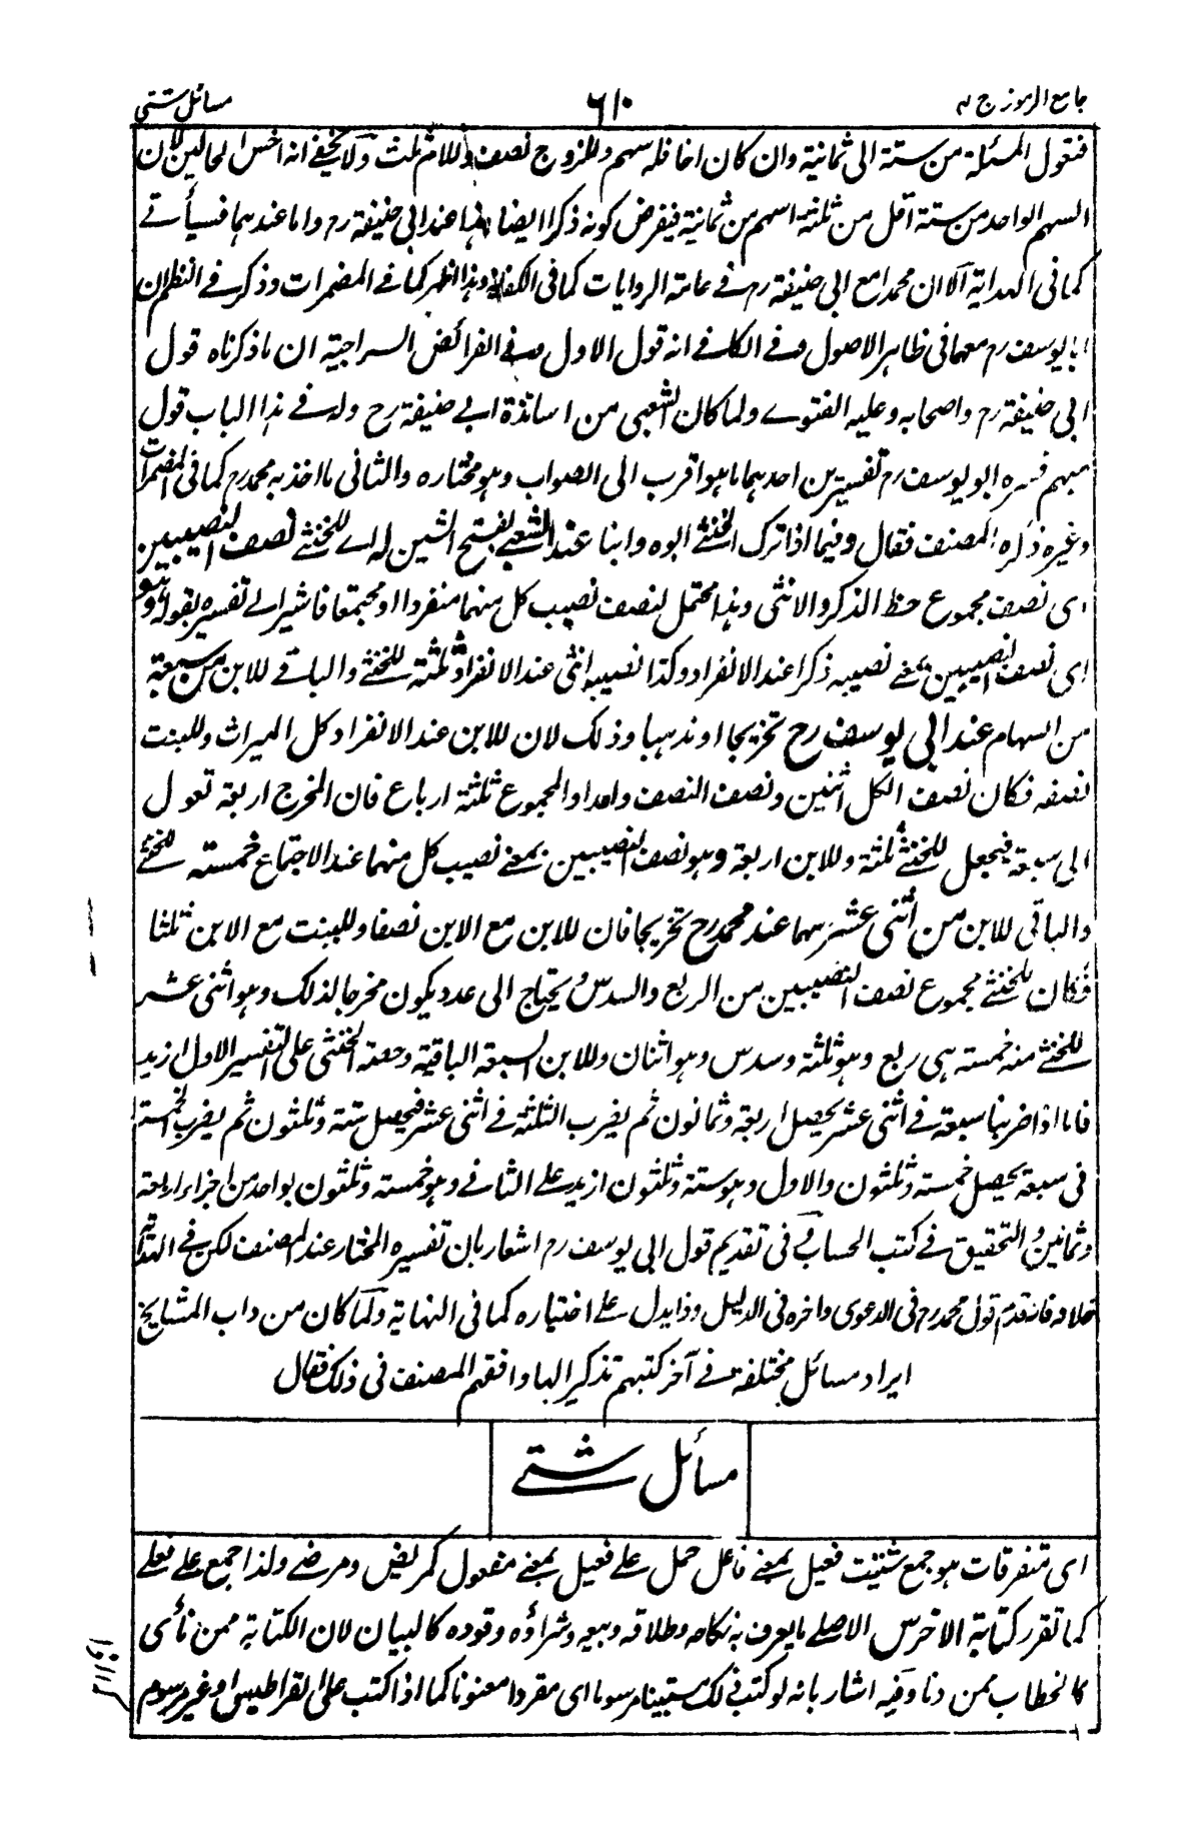 جامع الرموز ج ٢
٦١٠
مسائل شتى
فنقول المسئلة من ستة الى ثمانية وان كان اخا فله سهم وللزوج نصف وللام ثلث ولا يخفى انه اخس الحالين لان
السهم الواحد من ستة اقل من ثلثة اسهم من ثمانية فيفرض كونه ذكرا ايضا هذا عند ابي حنيفة رح واما عندهما فسيأتے
كما فى الهداية الا ان محمدا مع ابي حنيفة رح فے عامة الروايات كما فى الكفاية وهذا اظهر كما فے المضمرات وذكر فے النظم ان
ابا يوسف رح معهما فى ظاهر الاصول وفے الكافے انه قول الاول وفے الفرائض السراجية ان ما ذكرناه قول
ابى حنيفة رح واصحابه وعليه الفتوے ولما كان الشعبى من اساتذة ابے حنيفة رح وله فے هذا الباب قول
مبهم فسره ابو يوسف رح تفسيرين احدهما ما هو اقرب الى الصواب وهو مختاره والثانى ما اخذ به محمد رح كما فى المضمرات
وغيره ذكره المصنف فقال وفيما اذا ترك الخنثے ابوه وابنا عند الشعبے بفتح الشين له اے للخنثے نصف النصيبين
اى نصف مجموع حظ الذكر والانثى وهذا محتمل لنصف نصيب كل منهما منفردا او مجتمعا فاشير الے تفسيره بقوله وهو
اى نصف النصيبين بمعنے نصيبه ذكرا عند الانفراد وكذا نصيبه انثى عند الانفراد ثلثة للخنثے والباقے للابن من سبعة
من السهام عند ابى يوسف رح تخريجا او مذهبا وذلك لان للابن عند الانفراد كل الميراث وللبنت
نصفه فكان نصف الكل اثنين ونصف النصف واحدا والمجموع ثلثة ارباع فان المخرج اربعة تعول
الى سبعة فيجعل للخنثے ثلثة وللابن اربعة وهو نصف النصيبين بمعنے نصيب كل منهما عند الاجتماع خمسة للخنثے
والباقى للابن من اثنى عشر سهما عند محمد رح تخريجا فان للابن مع الابن نصفا وللبنت مع الابن ثلثا
فكان للخنثے مجموع نصف النصيبين من الربع والسدس يحتاج الى عدد يكون مخرجا لذلك وهو اثنى عشر
للخنثے منه خمسة هى ربع وهو ثلثة وسدس وهو اثنان وللابن السبعة الباقية وحصة الخنثى على التفسير الاول ازيد
فانا اذا ضربنا سبعة فے اثنى عشر يحصل اربعة وثمانون ثم يضرب الثلثة فے اثنى عشر فيحصل ستة وثلثون ثم يضرب الخمسة
فى سبعة يحصل خمسة وثلثون والاول وهو ستة وثلثون ازيد علے الثانے وهو خمسة وثلثون بواحد من اجزاء اربعة
وثمانين والتحقيق فے كتب الحساب وفى تقديم قول ابى يوسف رح اشعار بان تفسيره المختار عند المصنف لكن فے الهداية
خلافه فانه قدم قول محمد رح فى الدعوى واخره فى الدليل وذا يدل علے اختياره كما فى النهاية ولما كان من داب المشايخ
ايراد مسائل مختلفة فے آخر كتبهم تذكيرا لها وافقهم المصنف فى ذلك فقال
مسائل شتے
اى متفرقات هو جمع شتيت فعيل بمعنے فاعل حمل علے فعيل بمعنے مفعول كمريض ومرضے ولذا جمع علے فعلے
كما تقرر كتابة الاخرس الاصلے ما يعرف به نكاحه وطلاقه وبيعه وشراؤه وقوده كالبيان لان الكتابة ممن نأى
كالخطاب ممن دنا وفيه اشارة بانه لو كتب ذلك مستبينا مرسوما اى مقردا معنونا كما اذا كتب على القراطيس او غير مرسوم